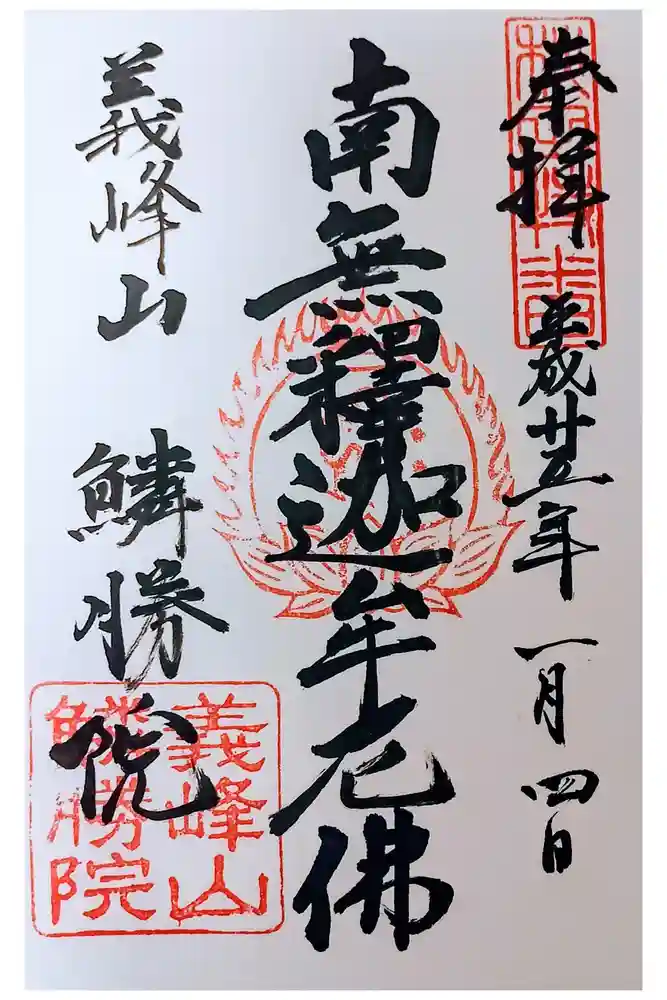 奉拝 平成廿五年 一月四日
南無釋迦牟尼佛
義峰山 鱗勝院
義峰山
鱗勝院